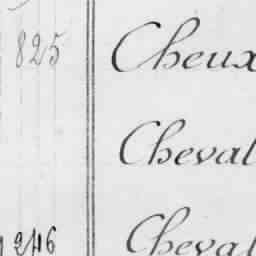 825 Cheux
Cheval
246 Cheval